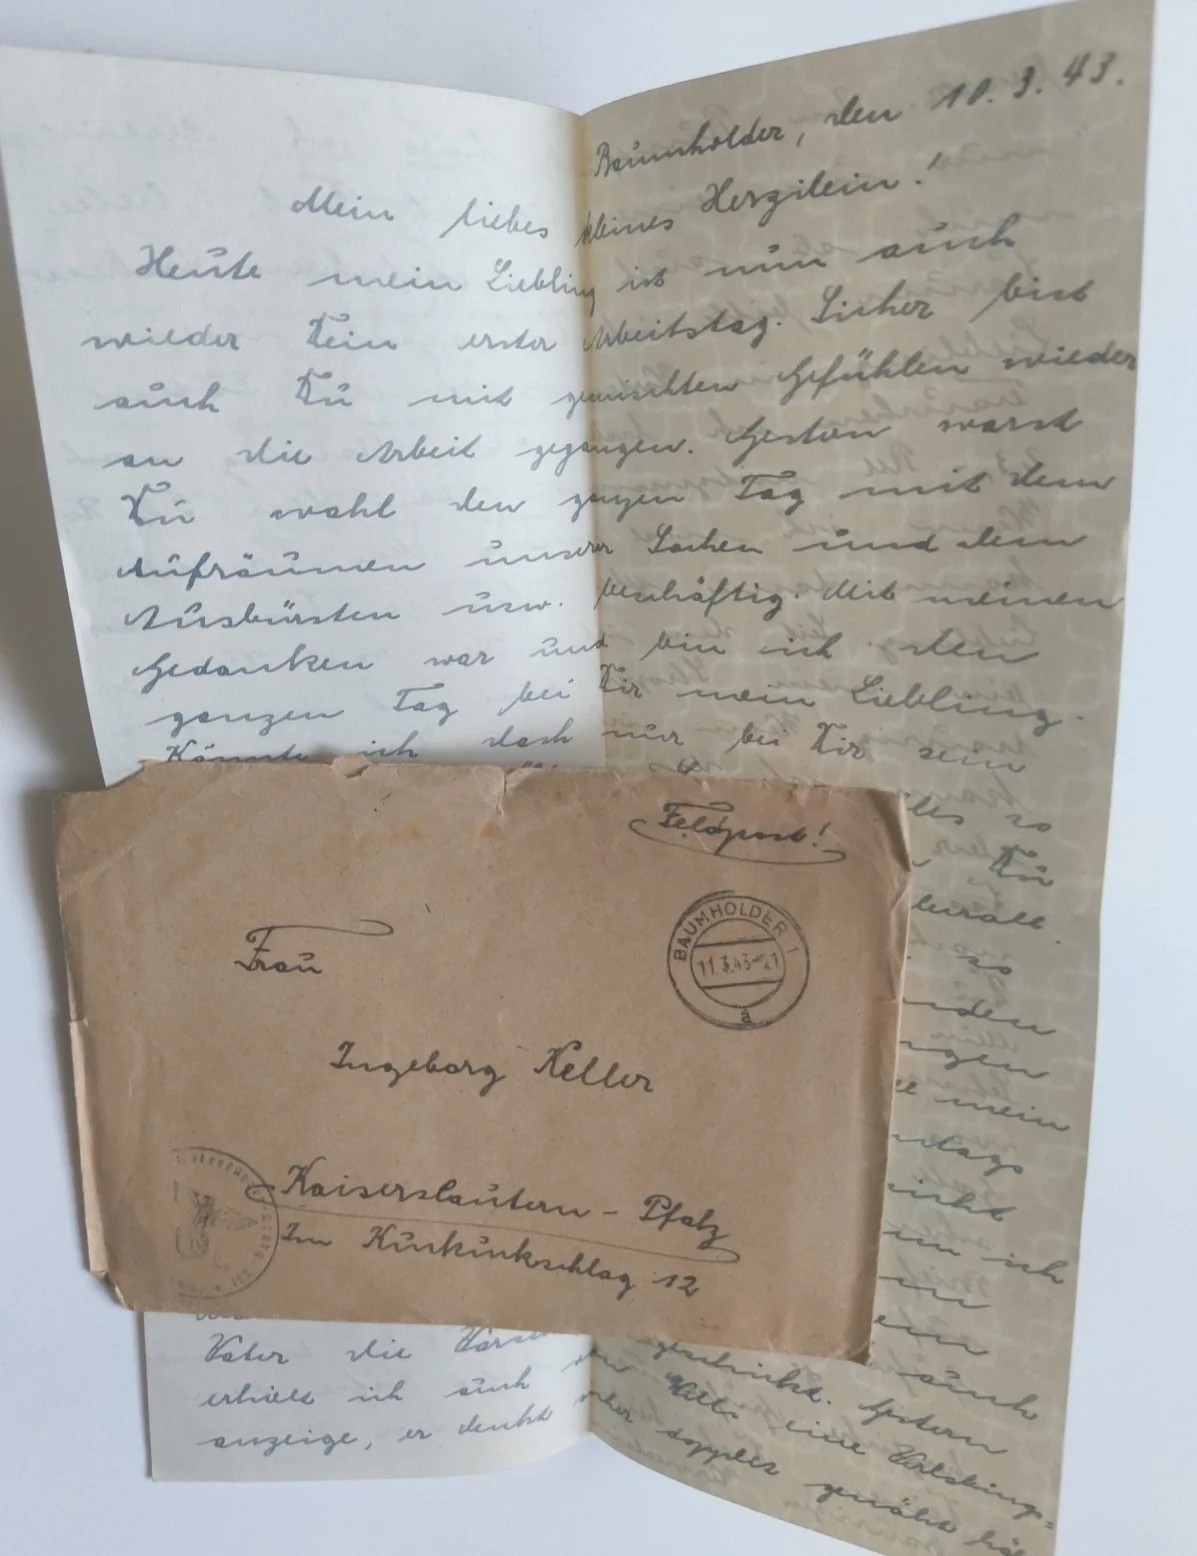 Baumholder, den 10.3.43.
Mein liebes kleines Herzilein!
Heute mein Liebling ist nun auch
wieder Dein erster Arbeitstag. Sicher bist
auch Du mit gemischten Gefühlen wieder
an die Arbeit gegangen. Gestern warst
Du wohl den ganzen Tag mit dem
Aufräumen unserer Sachen und dem
Ausbürsten usw. beschäftig. Mit meinen
Gedanken war und bin ich den
ganzen Tag bei Dir mein Liebling.
Könnte ich doch nur bei Dir sein
so
Du
überall.
so
mein
ich
auch
Vater die geschickt. Gestern
erhielt ich auch von Willi eine Verlobungs=
anzeige, er denkt doppelt genäht
Feldpost!
BAUMHOLDER 1
11.3.43-21
a
Frau
Ingeborg Keller
Kaiserslautern - Pfalz
Im Kuckuckschlag 12